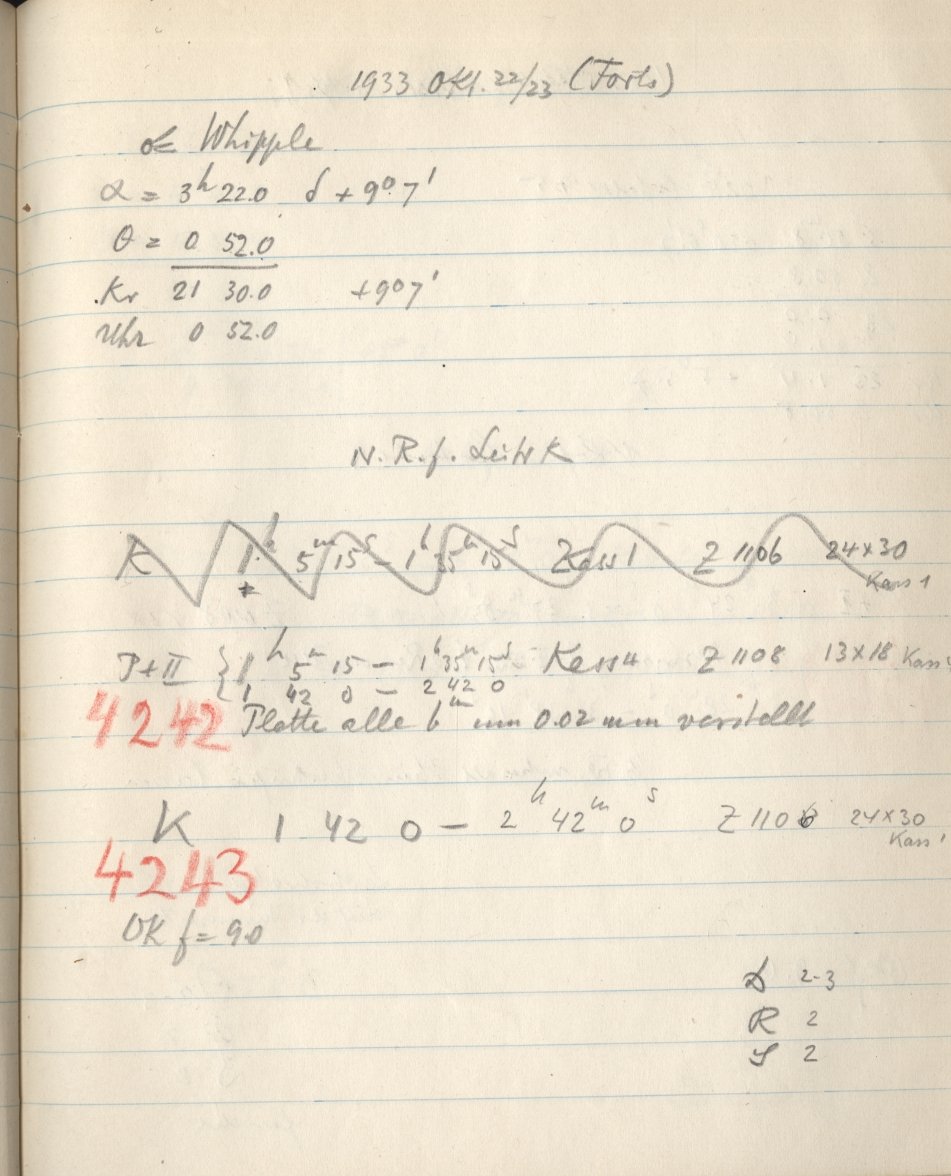 1933 Okt. 22/23 (Forts)
☄ Whipple
α = 3h 22.0 δ + 9° 7'
θ = 0 52.0
Kr 21 30.0 +9° 7'
Uhr 0 52.0
N. R. f. Leitr K
K 1h 5m 15s – 1h 35m 15s Kass 1 Z 1106 24×30
Kass 1
P+II { 1h 5m 15 – 1h 35m 15s Kass 4 Z 1108 13×18 Kass
1 42 0 – 2 42 0
4242 Platte alle 6m um 0.02 mm verstellt
K 1 42 0 – 2h 42m 0s Z 1106 24×30
Kass 1
4243
OK f = 9.0
D 2-3
R 2
S 2